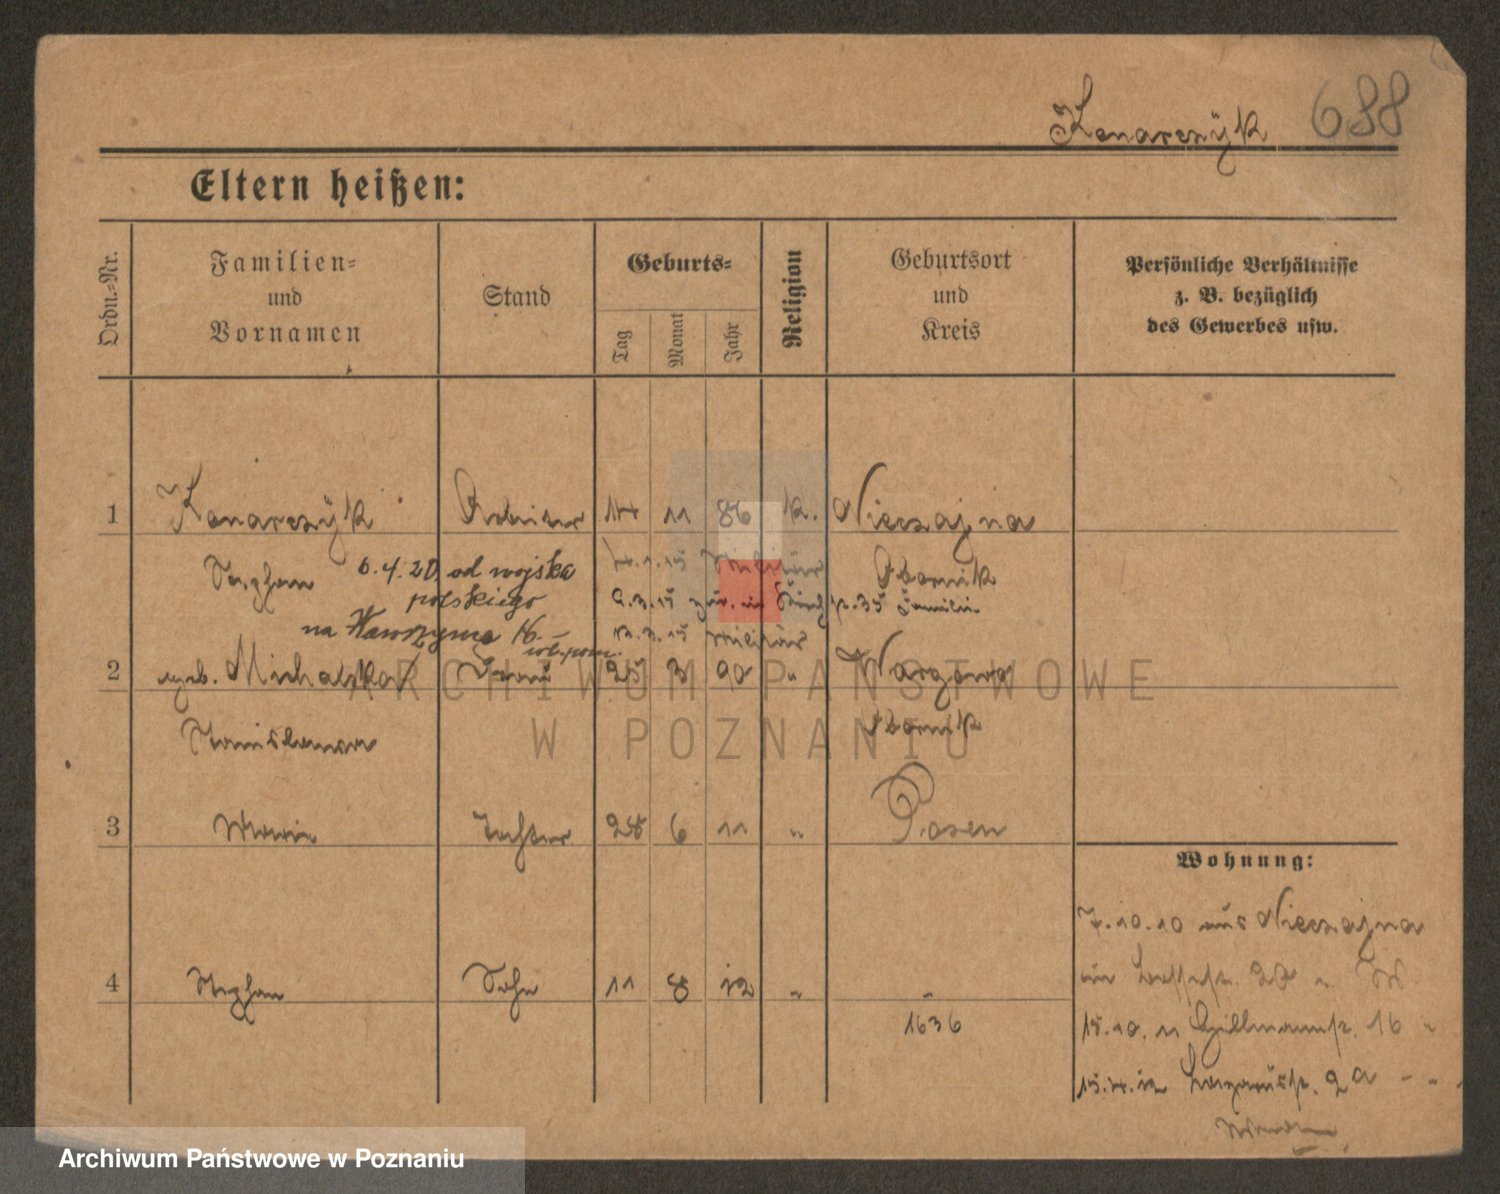 Konarczÿk 688
Eltern heißen:
Ordn.-Nr.
Familien-
und
Vornamen
Stand
Geburts-
Tag
Monat
Jahr
Religion
Geburtsort
und
Kreis
Persönliche Verhältnisse
z. B. bezüglich
des Gewerbes usw.
1 Konarczÿk Arbeiter 14 11 86 k. Nieczajna
Stephan 6.4.20 od wojska Militär Obornik
polskiego
na Wawrzyna 16.–
2 geb. Michalska Frau 25 3 90 " Wargowo
Stanislawa Obornik
3 Maria Tochter 28 6 11 " Posen
4 Stephan Sohn 11 8 12 " "
1636
Wohnung:
7.10.10 aus Nieczajna
15.10.11 16 "
15.4.12 2a - "
ARCHIWUM PAŃSTWOWE
W POZNANIU
Archiwum Państwowe w Poznaniu